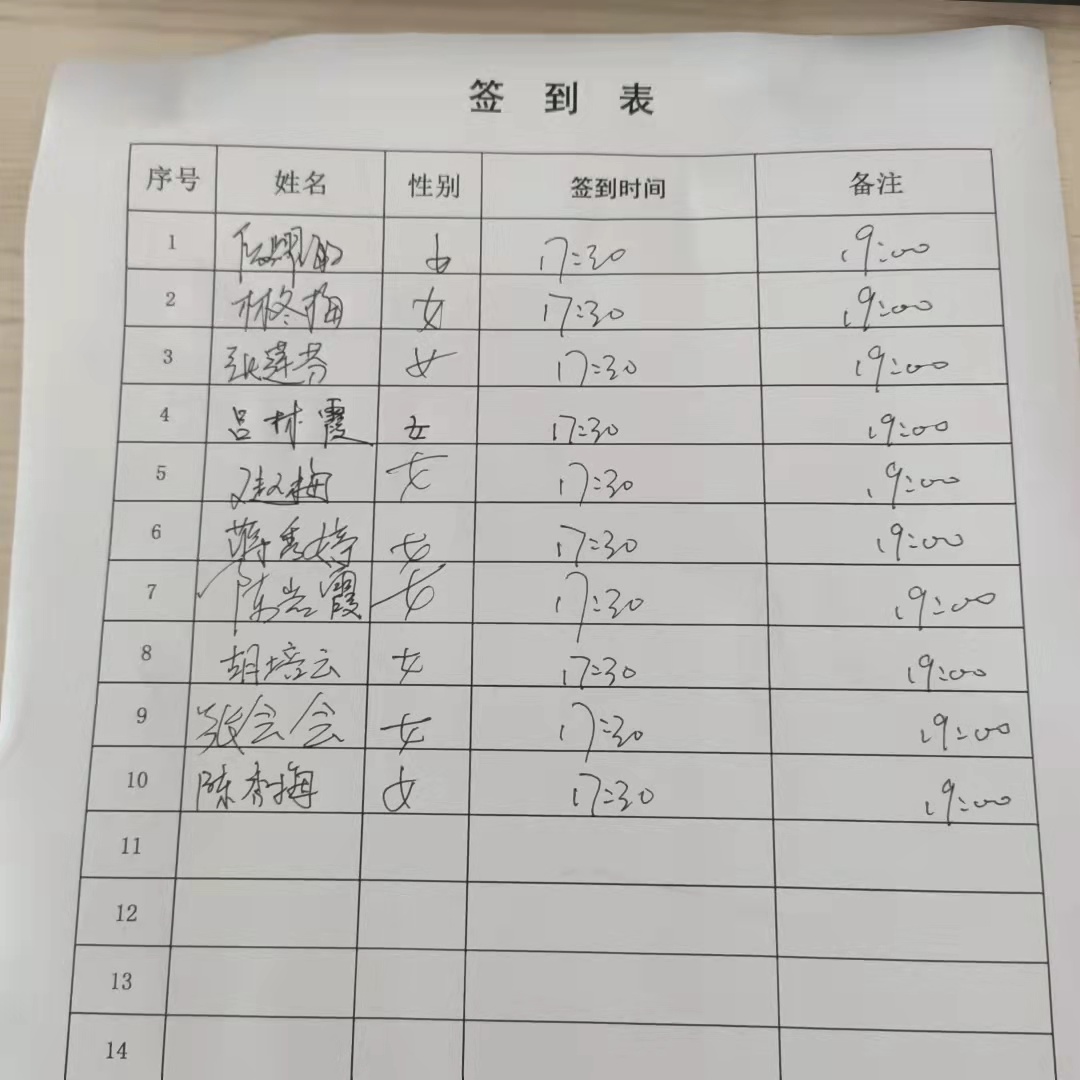 签到表
序号 姓名 性别 签到时间 备注
1 女 17:30 19:00
2 林冬梅 女 17:30 19:00
3 张莲芳 女 17:30 19:00
4 吕林霞 女 17:30 19:00
5 赵梅 女 17:30 19:00
6 蒋秀婷 女 17:30 19:00
7 陈岩霞 女 17:30 19:00
8 胡培云 女 17:30 19:00
9 张会会 女 17:30 19:00
10 陈秀梅 女 17:30 19:00
11
12
13
14